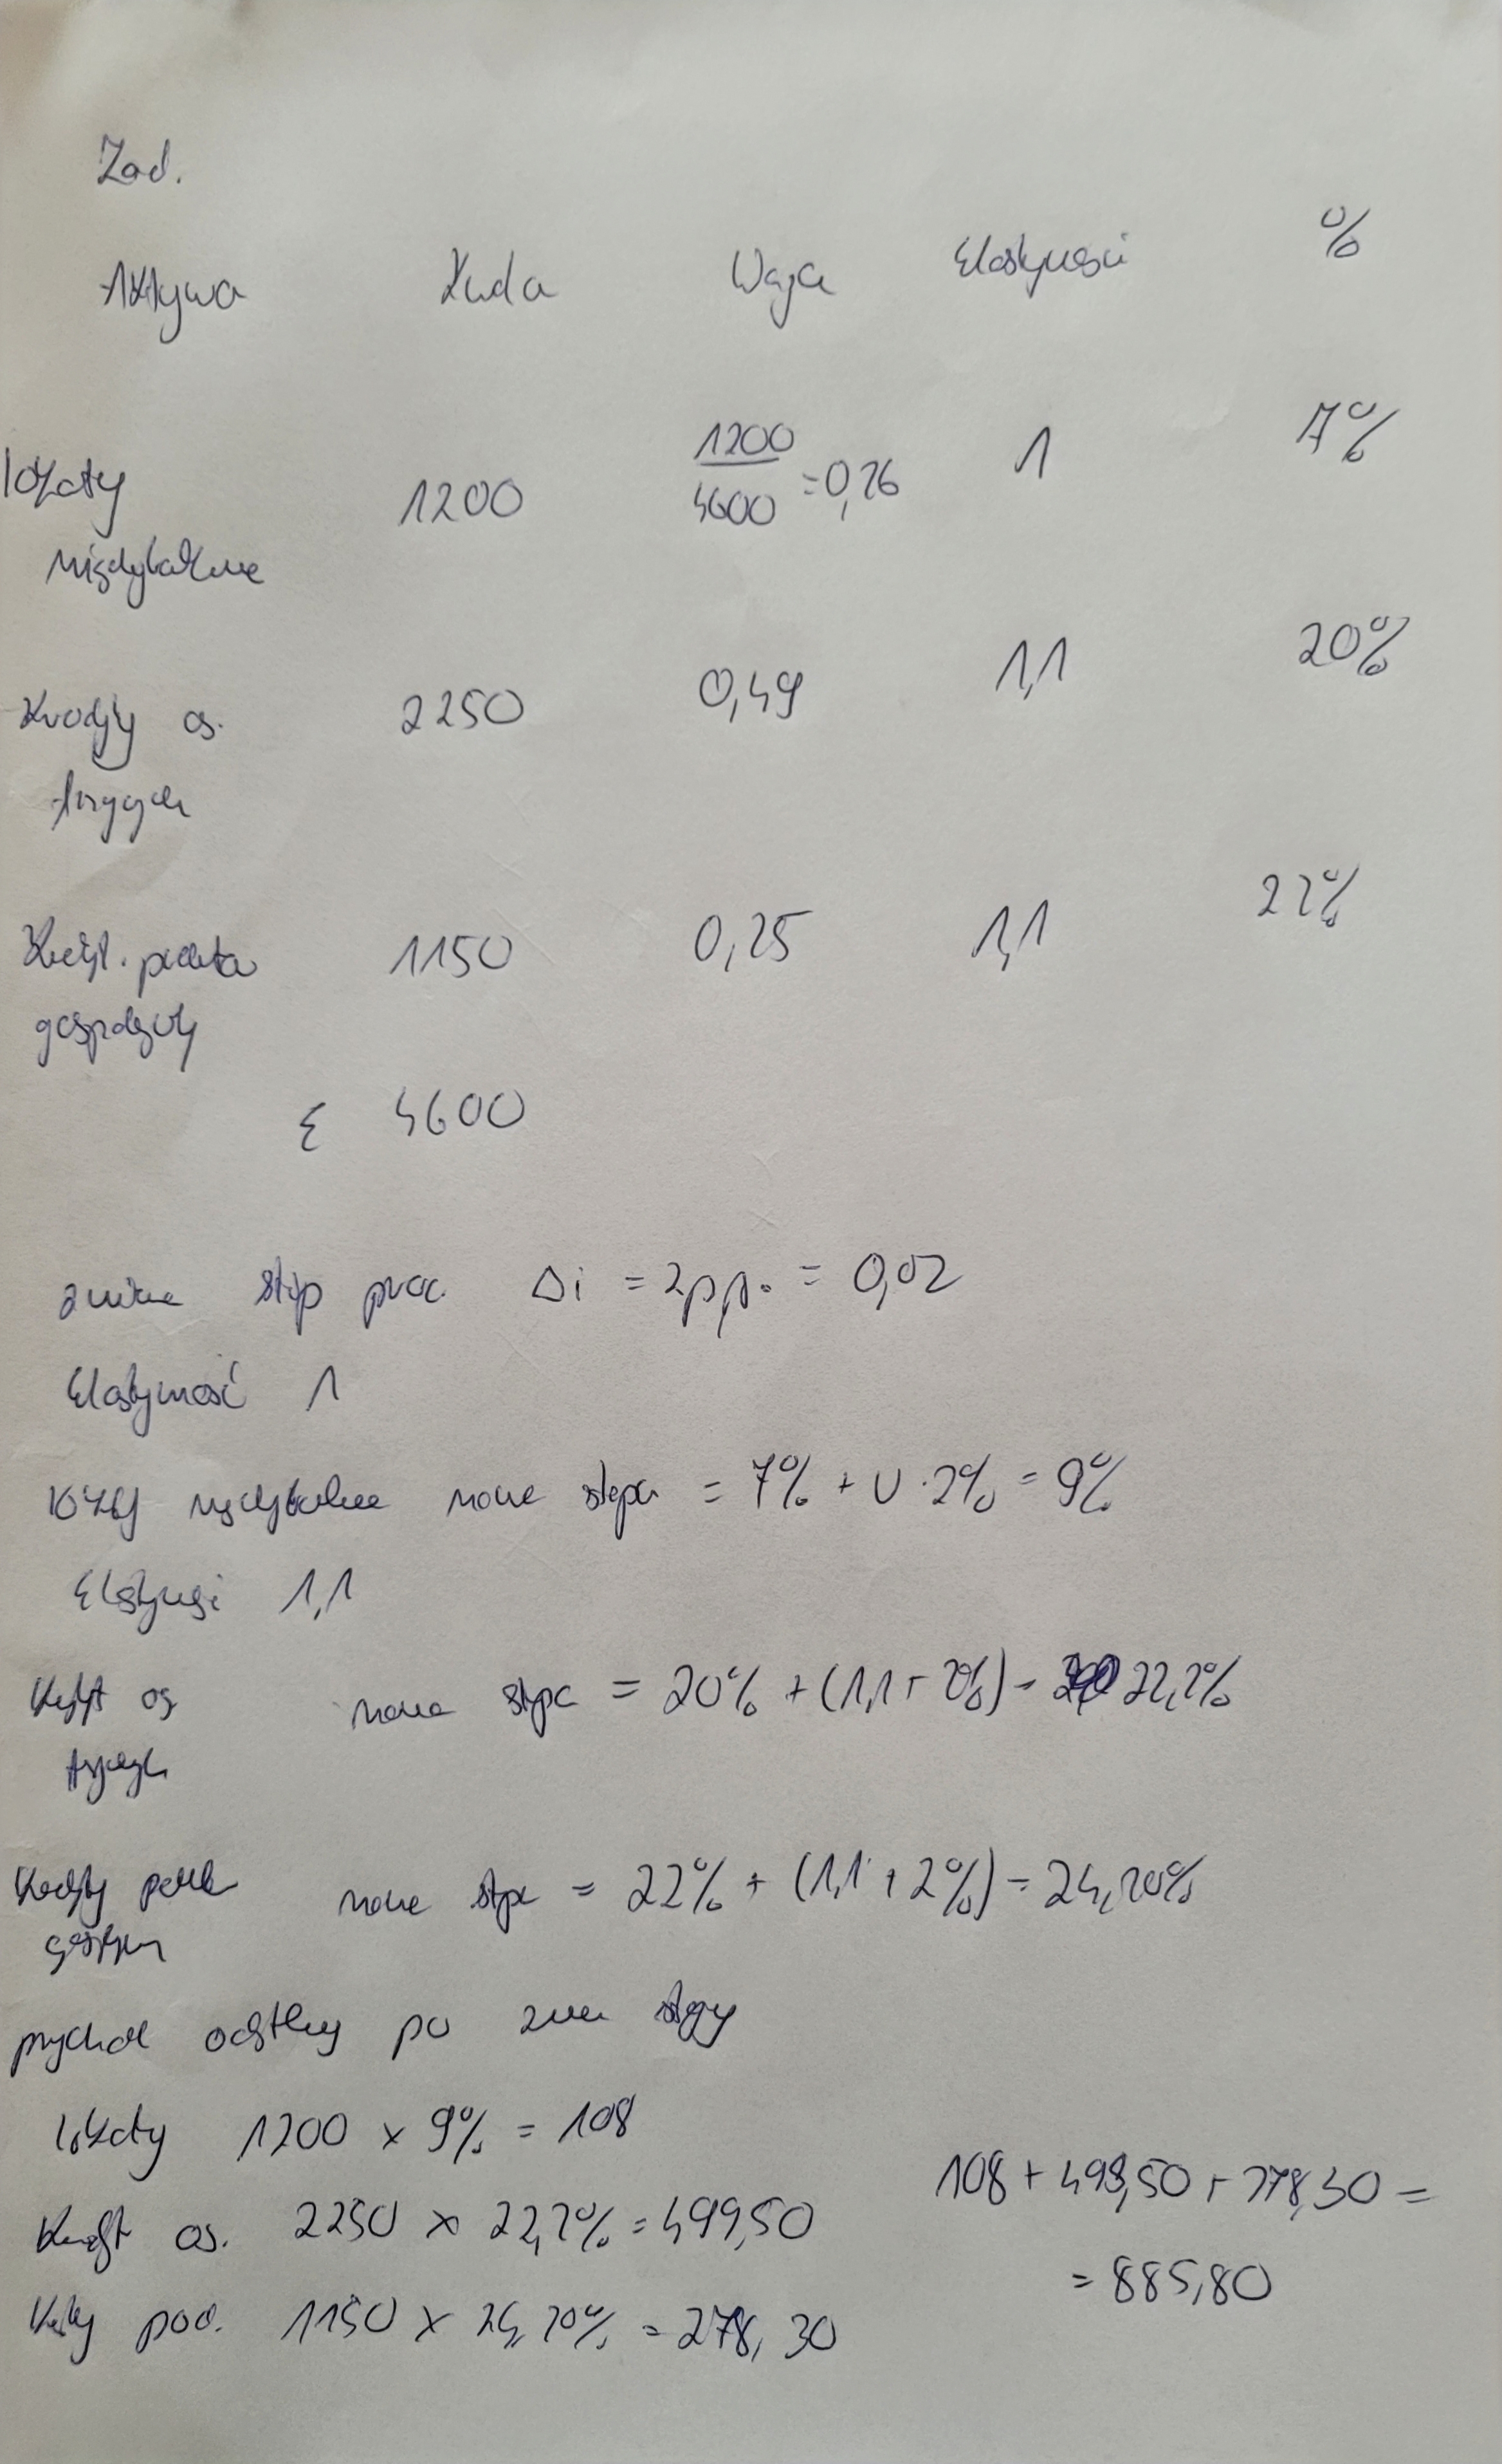 Zad.
Aktywa Kwota Waga Elastyczność %
lokaty 1200 1200/4600 = 0,26 1 7%
międzybankowe
Kredyty os. 2250 0,49 1,1 20%
fizycznych
Kredyt. podmioty 1150 0,25 1,1 22%
gospodarcze
Σ 4600
zmiana stóp proc. Δi = 2p.p. = 0,02
Elastyczność 1
lokaty międzybankowe nowa stopa = 7% + 1 · 2% = 9%
Elastyczność 1,1
Kredyt os nowa stopa = 20% + (1,1 + 2%) = 22,2%
fizycznych
Kredyty podm nowa stopa = 22% + (1,1 + 2%) = 24,20%
gospodar
przychód odsetkowy po zmianie stopy
lokaty 1200 × 9% = 108
108 + 499,50 + 278,30 =
Kredyt os. 2250 × 22,2% = 499,50
= 885,80
Kredyty pod. 1150 × 24,20% = 278,30